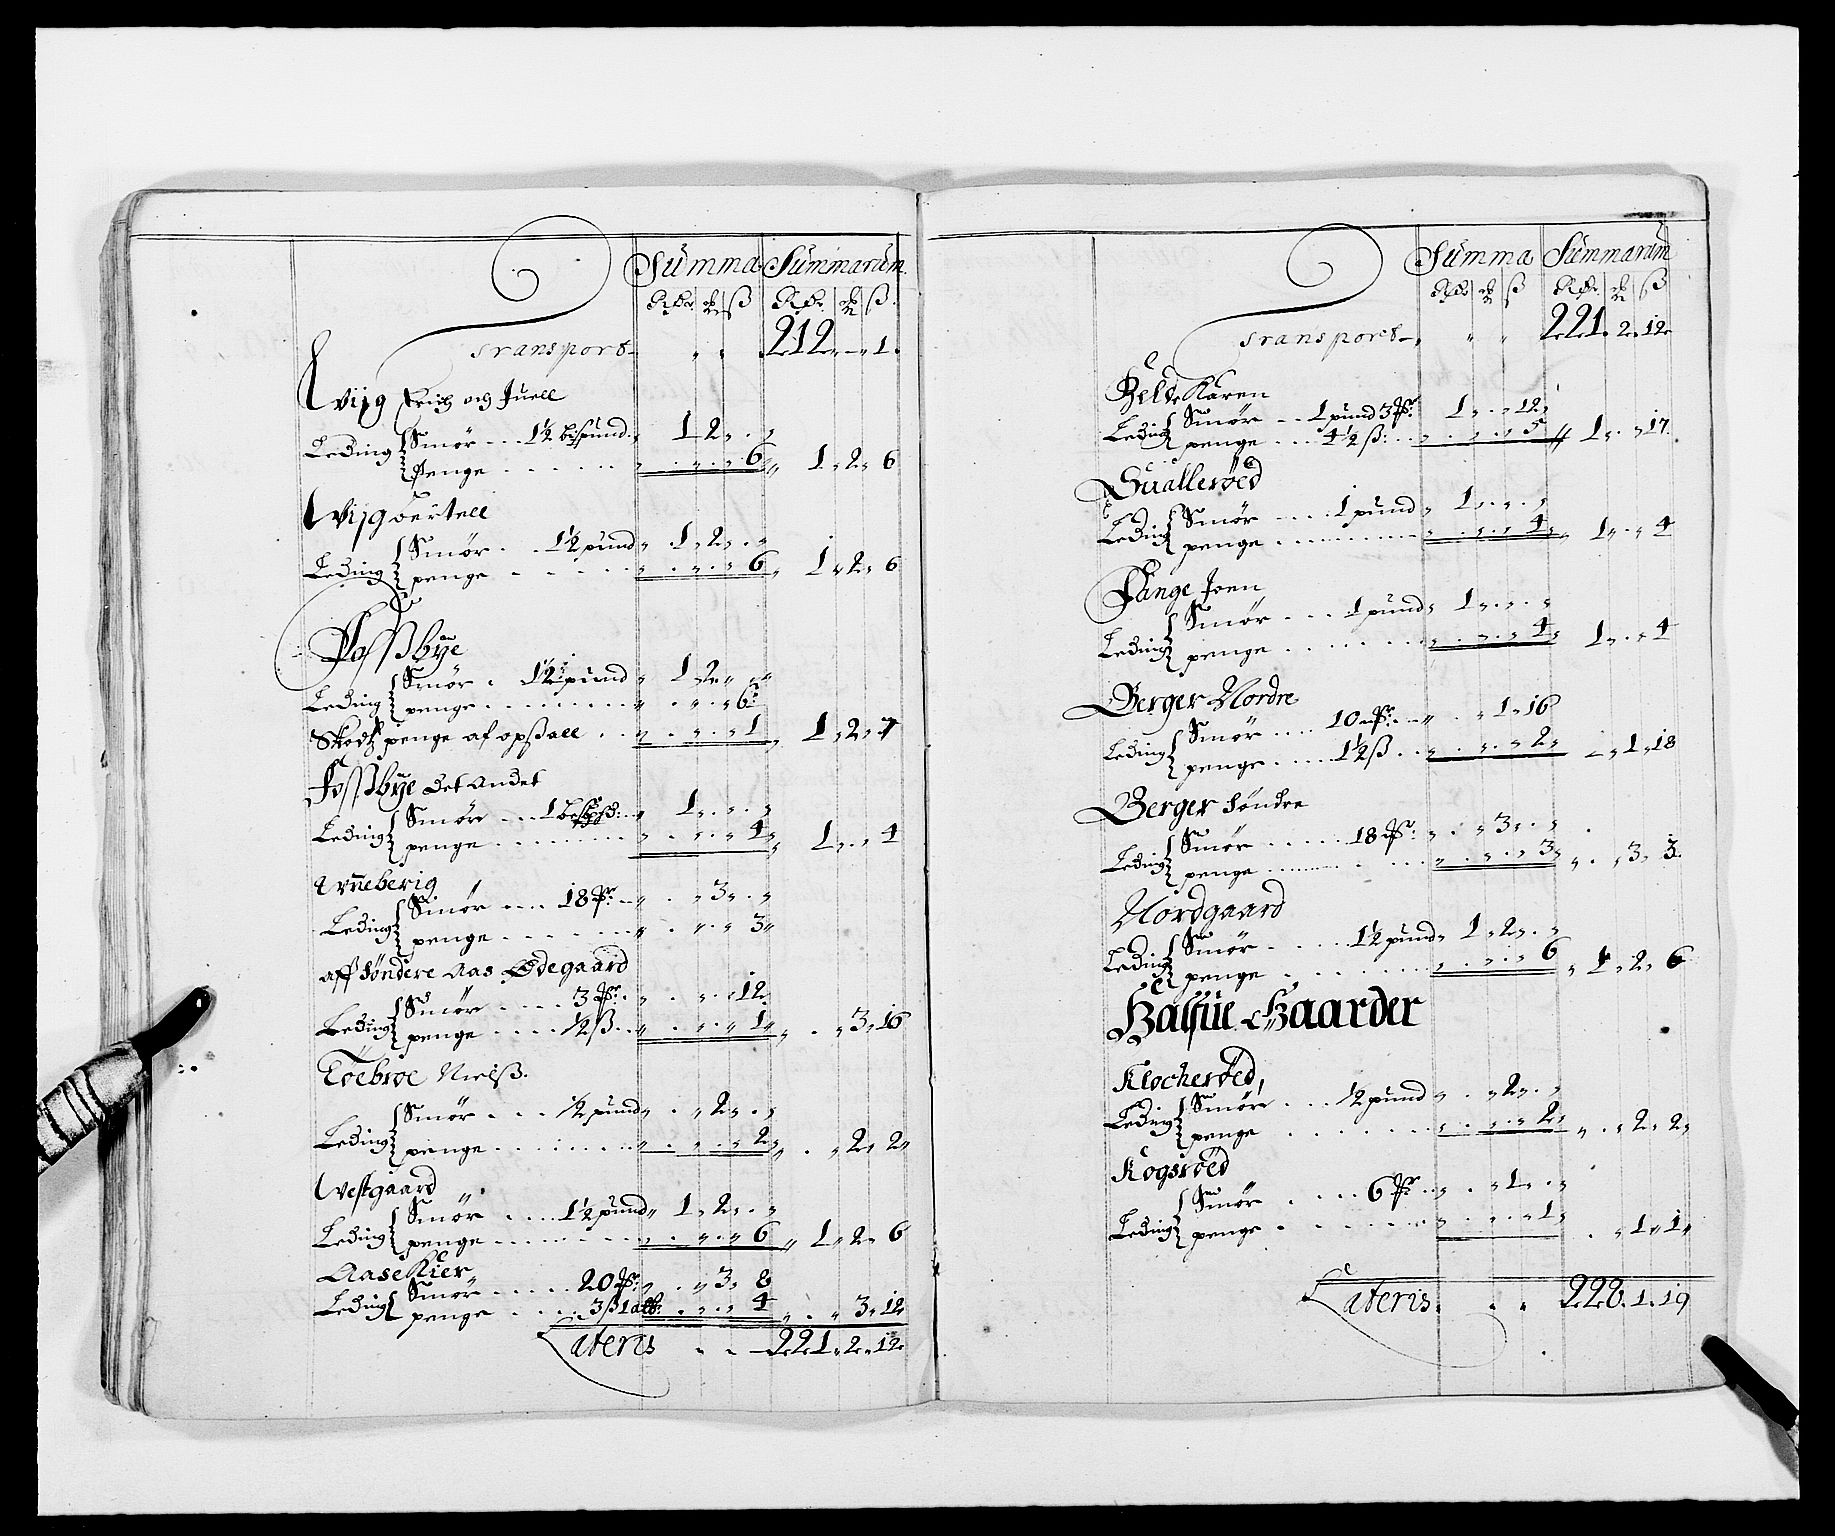 Summa Summarum
Rdr. ß Rdr. ß.
Transport „ „ 212 „ — „ 1.
Wijg Erich och Juell
Leding Smør ... 1½ bispund „ 1 2 „ . „
penge ...... „ . „ . „ 6 „ 1 „ 2 „ 6
Wijg
Leding Smør . . 1½ pund „ 1 „ 2 „ . „
penge ..... „ . „ . „ 6 „ 1 „ 2 „ 6
Fossbye
Leding Smør . 1½ pund „ 1 2 „ „
penge ......... „ . „ . „ 6
Skodtz penge af opsaae . . „ . „ . „ 1 „ 1 „ 2 „ 7
Fossbye det andet
Leding Smør ... 1 „ 1 „ . „ . „
penge ........ „ . „ . „ 4 „ 1 „ . „ 4
Unneberig
Leding Smør .... 18 „ . „ 3 „ . „
penge ...... „ . „ . „ 3 „
aff Søndere Aas Ødegaard
Leding Smør .... 3 „ . „ . „ 12
penge .... ½ ß. „ . „ . „ 1 „ . „ 3 „ 16
Toebroe Nielß.
Leding Smør .... ½ pund „ . „ 2 „ . „
penge ......... „ . „ . „ 2 „ . „ 2 „ 2 „
Westgaard
Leding Smør .... 1½ pund „ 1 „ 2 „ . „
penge ........ „ . „ . „ 6 „ 1 „ 2 „ 6
Aase Kier
Leding Smør ..... 20 „ . „ 3 „ 8
penge .... 3 ß 1 alb: . „ . „ 4 „ . „ 3 „ 12
Lateris . . — 221 „ 2 „ 12
Summa Summarum
Rdr ß Rdr. ß
Transport „ „ „ 221 „ 2 „ 12
Helde Karen
Leding Smør .. 1 pund 3 1 „ . „ 12
penge ... 4½ ß: . . „ . „ 5 „ 1 „ . „ 17.
Suallerøed
Leding Smør .... 1 pund „ 1 „ . „ . „
penge ......... „ . „ . „ 4 „ 1 „ . „ 4
Fange Joen
Leding Smør .... 1 pund „ 1 „ . „ . „
penge ........ „ . „ . „ 4 „ 1 „ . „ 4
Berger Nordre
Leding Smør .... 10 „ . „ 1 „ 16
penge .... 1½ ß . . „ . „ . „ 2 „ . „ 1 „ 18
Berger Søndre
Leding Smør ..... 18 „ . „ 3 „ . „
penge ........ „ . „ . „ 3 „ . „ 3 „ 3.
Nordgaard
Leding Smør ..... 1½ pund „ 1 „ 2 „ . „
penge ....... „ . „ . „ 6 „ 1 „ 2 „ 6
Halfue Gaarder
Klocherøed,
Leding Smør ... ½ pund „ . „ 2 „ . „
penge ....... „ . „ . „ 2 „ . „ 2 „ 2 „
Kogsrøed
Leding Smør ..... 6 „ . „ 1 „ . „
penge ....... „ . „ . „ 1 „ . „ 1 „ 1 „
Lateris. . „ 228 . 1 „ 19